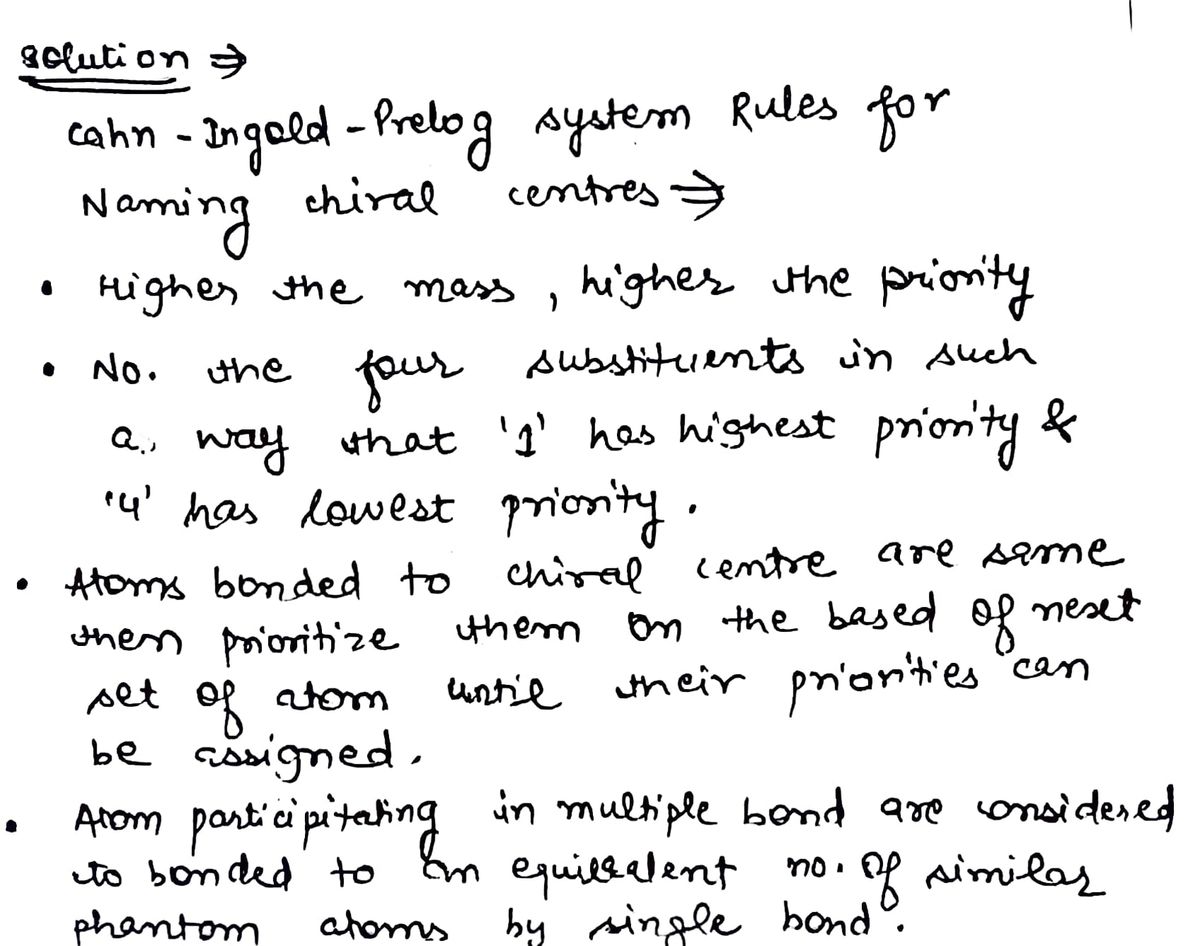 solution ⇒
Cahn - Ingold - Prelog system Rules for
Naming chiral centres ⇒
• Higher the mass, higher the priority
• No. the four substituents in such
a, way that '1' has highest priority &
'4' has lowest priority.
• Atoms bonded to chiral centre are same
then prioritize them on the based of next
set of atom until their priorities can
be assigned.
• Atom particîpitating in multiple bond are considered
to bonded to an equivalent no. of similar
phantom atoms by single bond.